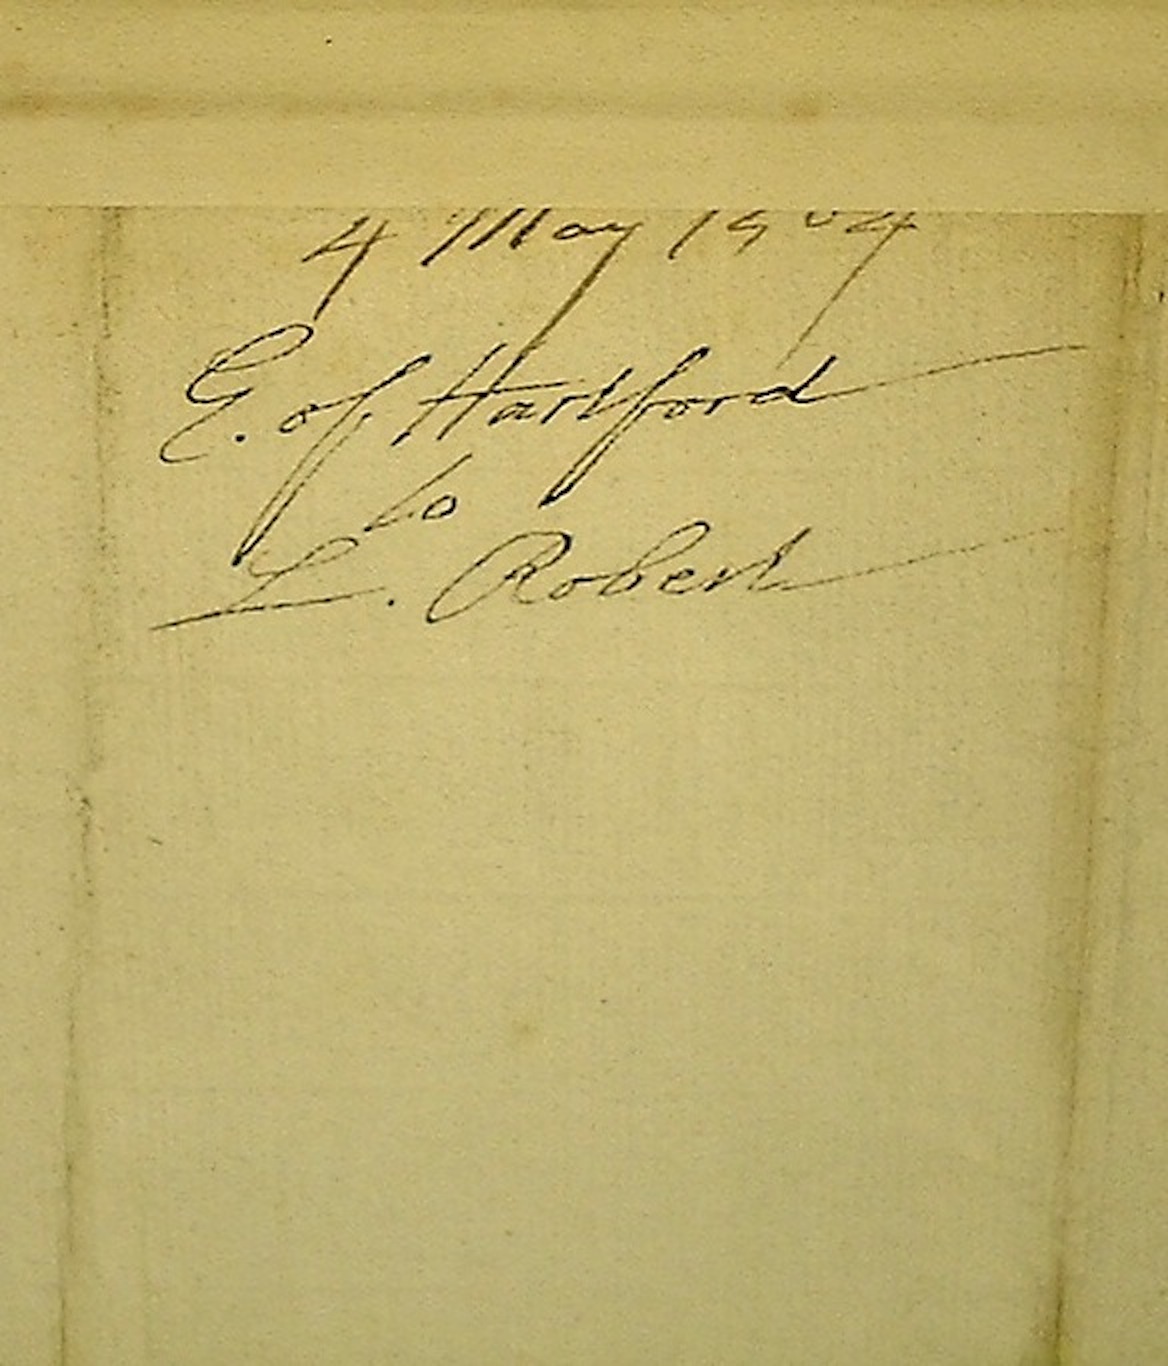 4 May 1904
E. of Hartford
to
L. Robert